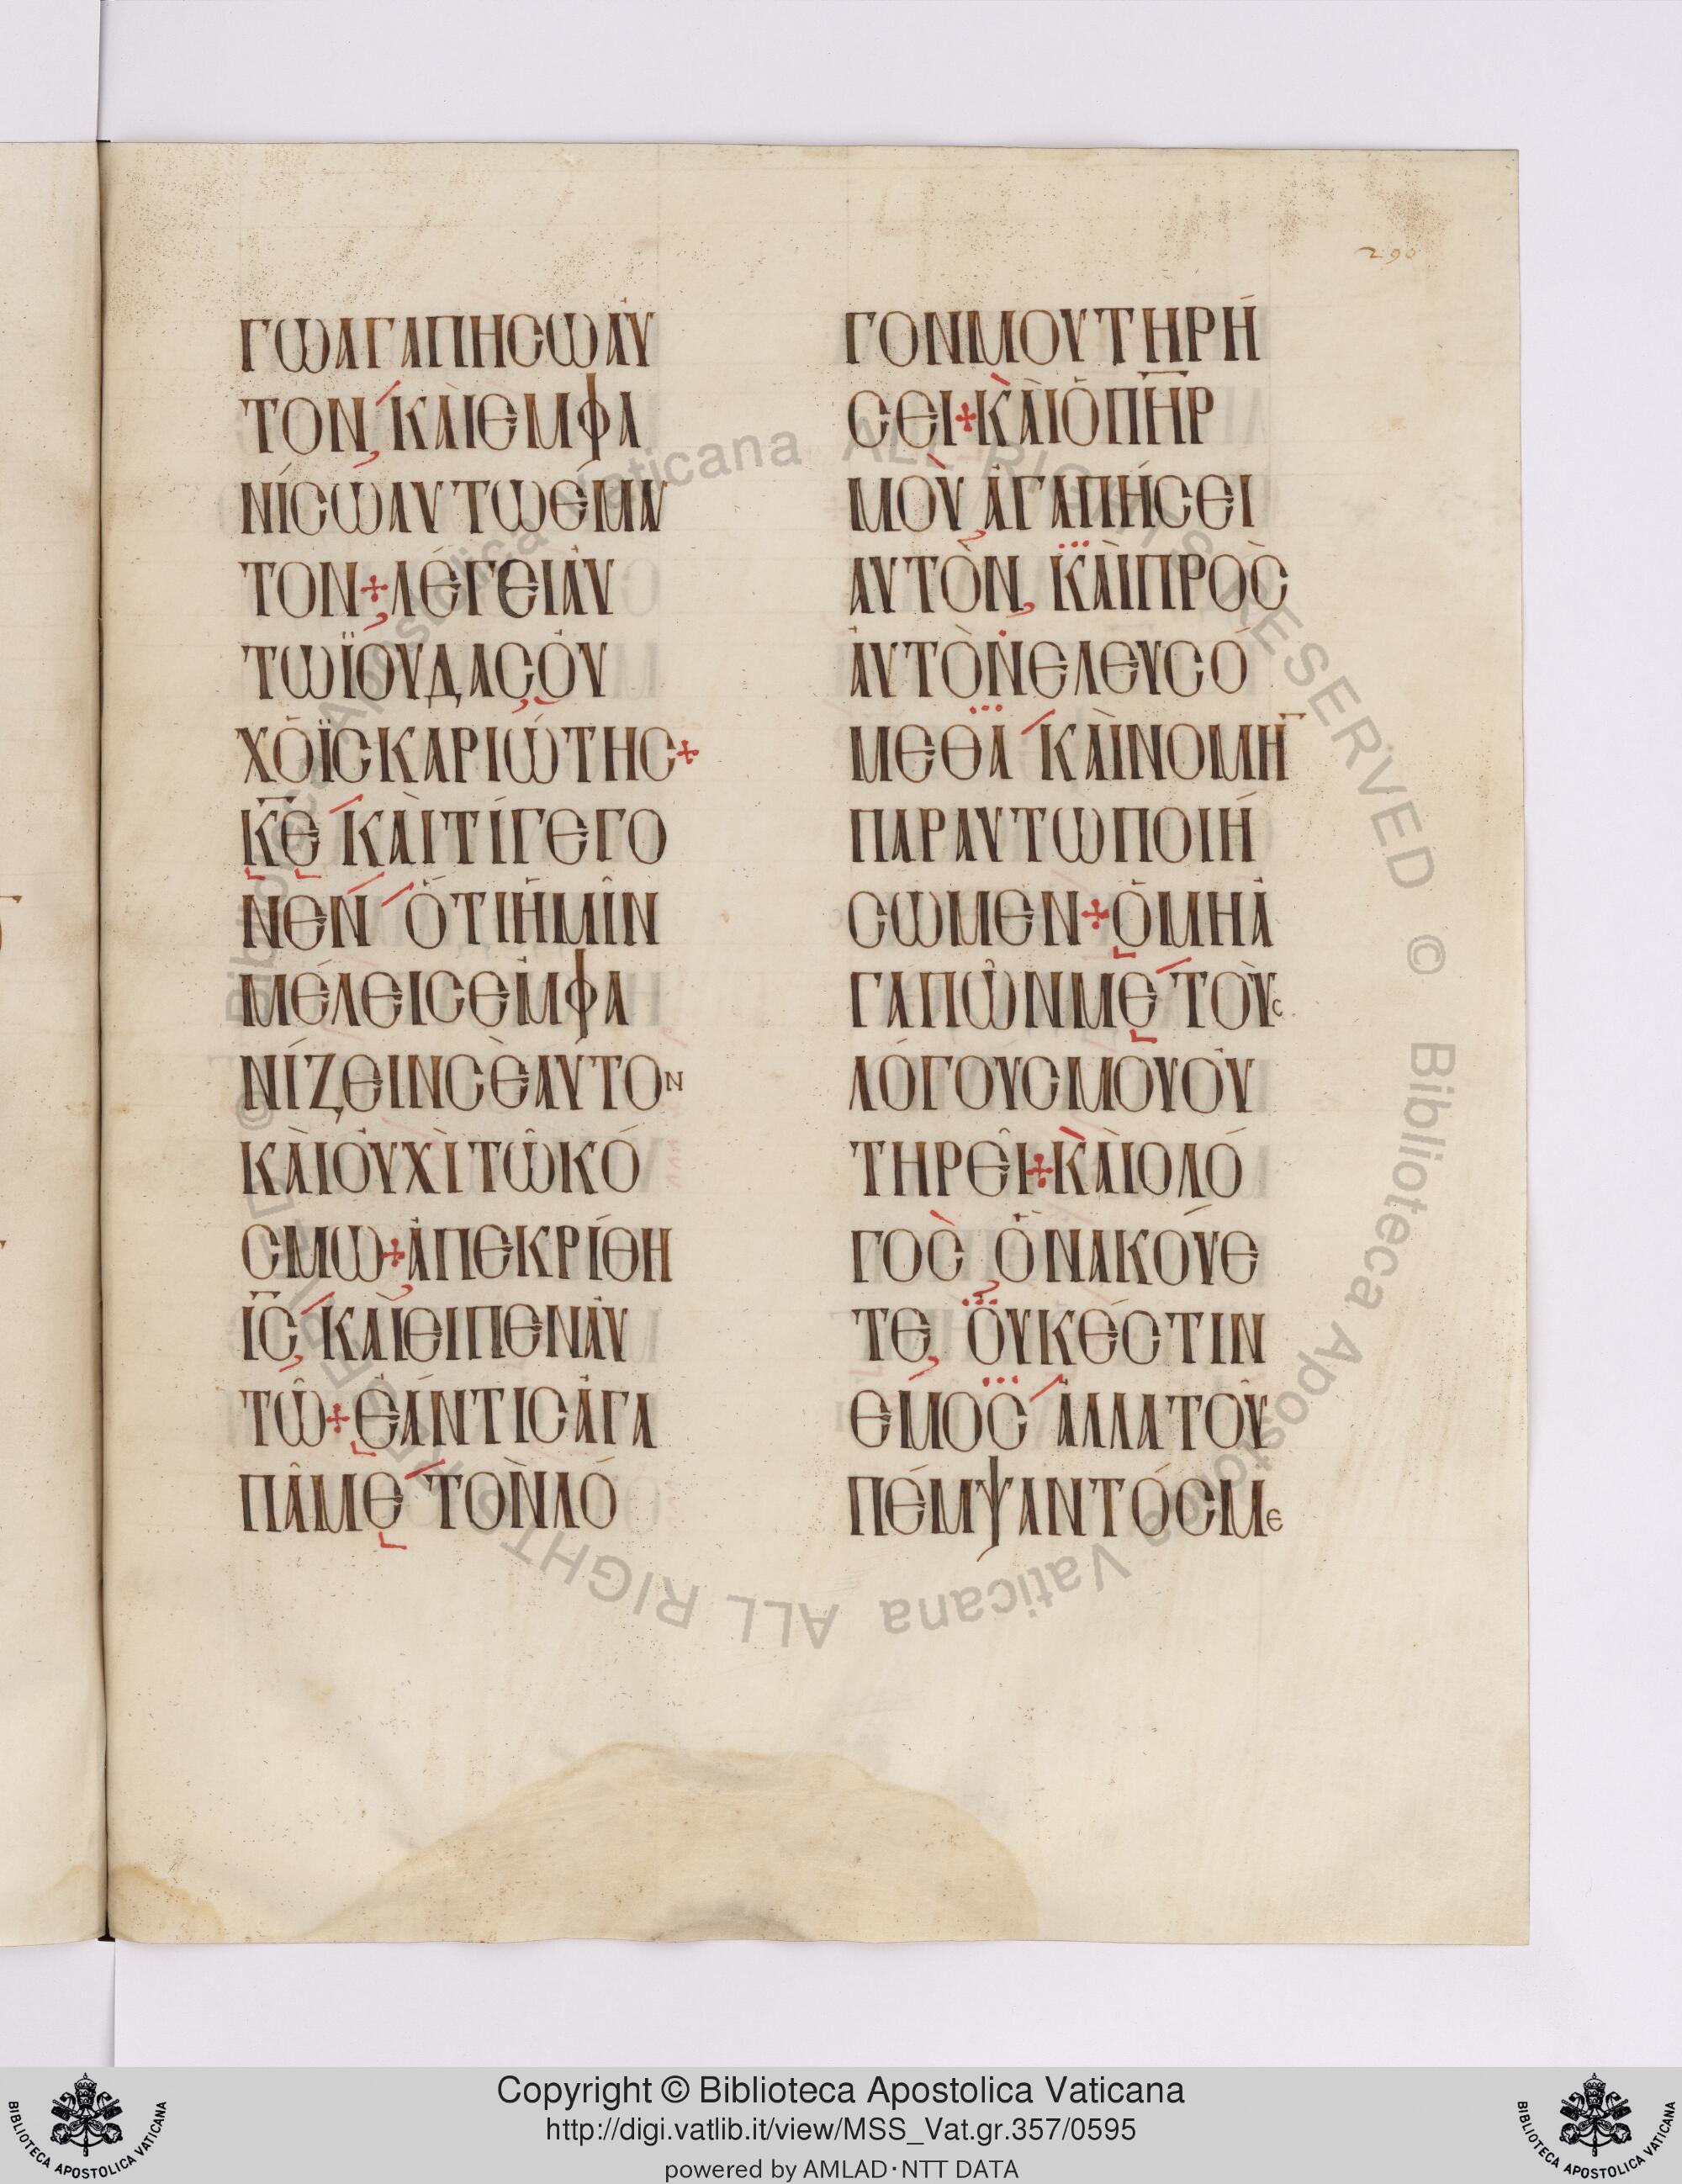 290
ΓΩΑΓΑΠΗСΩΑΥ
ΤΟΝ, ΚΑΙΕΜΦΑ
ΝΙСΩΑΥΤΩΕΜΑΥ
ΤΟΝ+ΛΕΓΕΙΑΥ
ΤΩΪΟΥΔΑСΟΥ
ΧΟΪСΚΑΡΙΩΤΗС+
Κ̅Ε̅ ΚΑΙΤΙΓΕΓΟ
ΝΕΝ ΟΤΙΗΜΙΝ
ΜΕΛΕΙСΕΜΦΑ
ΝΙΖΕΙΝСΕΑΥΤΟΝ
ΚΑΙΟΥΧΙΤΩΚΟ
СΜΩ+ΑΠΕΚΡΙΘΗ
Ι̅С̅ ΚΑΙΕΙΠΕΝΑΥ
ΤΩ+ΕΑΝΤΙСΑΓΑ
ΠΑΜΕ ΤΟΝΛΟ
ΓΟΝΜΟΥΤΗΡΗ
СΕΙ+ΚΑΙΟΠ̅Η̅Ρ̅
ΜΟΥ ΑΓΑΠΗСΕΙ
ΑΥΤΟΝ, ΚΑΙΠΡΟС
ΑΥΤΟΝΕΛΕΥСΟ
ΜΕΘΑ ΚΑΙΝΟΜΗ̅
ΠΑΡΑΥΤΩΠΟΙΗ
СΩΜΕΝ+ΟΜΗΑ
ΓΑΠΩΝΜΕ ΤΟΥС
ΛΟΓΟΥСΜΟΥΟΥ
ΤΗΡΕΙ+ΚΑΙΟΛΟ
ΓΟС ΟΝΑΚΟΥΕ
ΤΕ, ΟΥΚΕСΤΙΝ
ΕΜΟС ΑΛΛΑΤΟΥ
ΠΕΜΨΑΝΤΟСΜΕ
© Biblioteca Apostolica Vaticana ALL RIGHTS RESERVED © Biblioteca Apostolica Vaticana ALL RIGHTS RESERVED
BIBLIOTECA APOSTOLICA VATICANA
Copyright © Biblioteca Apostolica Vaticana
http://digi.vatlib.it/view/MSS_Vat.gr.357/0595
powered by AMLAD·NTT DATA
BIBLIOTECA APOSTOLICA VATICANA